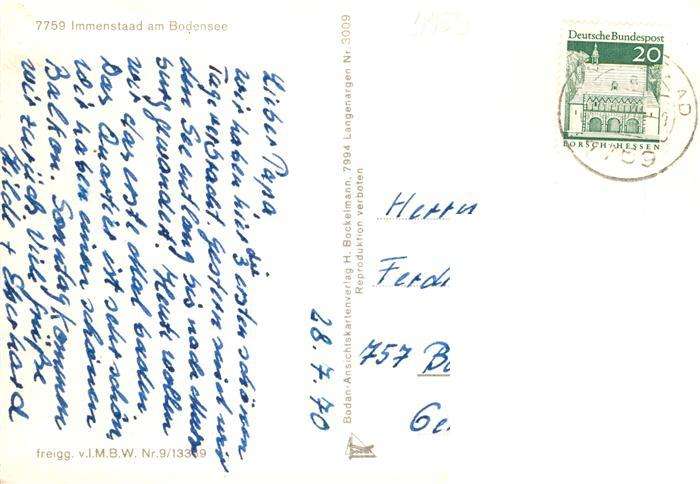 7759 Immenstaad am Bodensee
28.7.70
Lieber Papa,
wir haben hier die 3 ersten schönen
Tage verbracht. Gestern sind wir
den See entlang bis nach Meers
burg gewandert. Heut wollen
wir das erste Mal baden.
Das Quartier ist sehr schön,
wir haben einen schönen
Balkon. Sonntag kommen
wir zurück. Viele Grüße
Hildi + Eberhard
freigg. v.I.M.B.W. Nr.9/13339
Bodan-Ansichtskartenverlag H. Bockelmann, 7994 Langenargen Nr. 3009
Reproduktion verboten
Deutsche Bundespost
20
LORSCH/HESSEN
7759
Herrn
Ferd
757 B
Ge